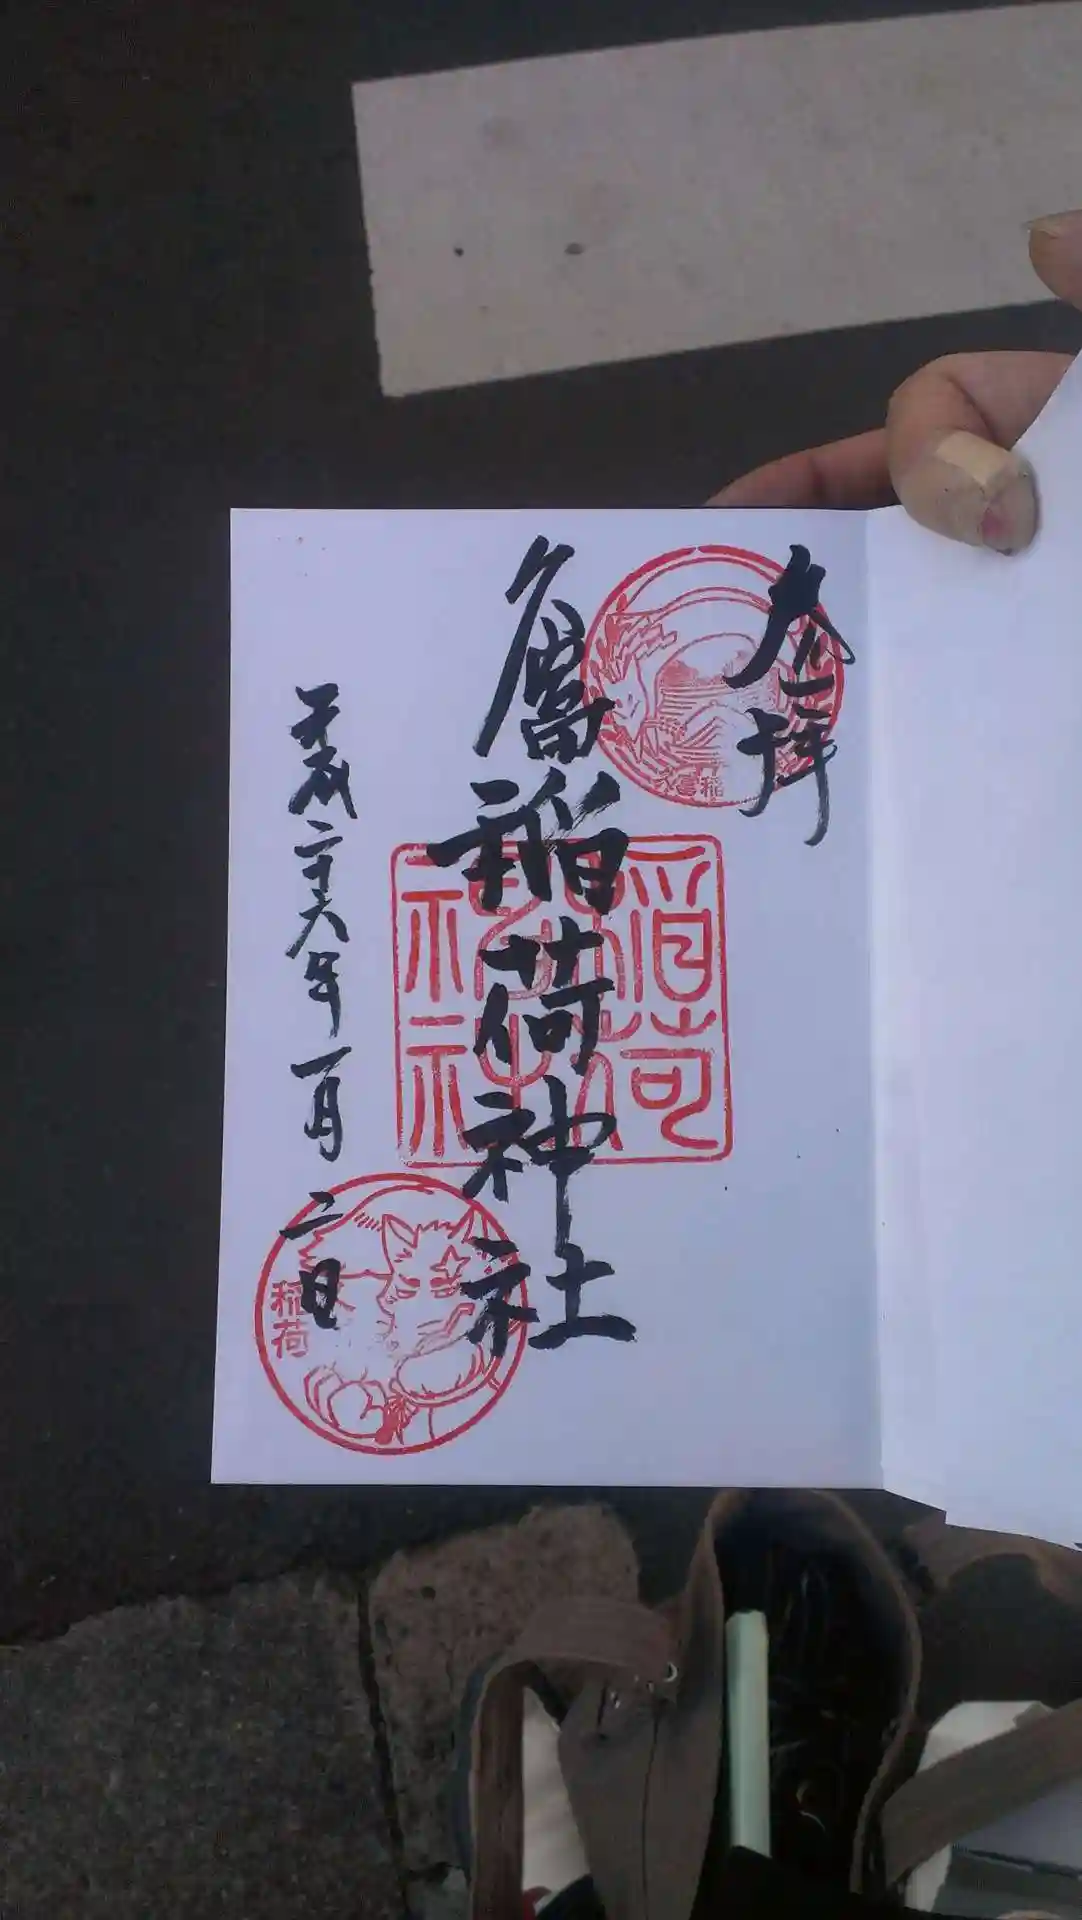 参拝
久富稲
久富稲荷神社
稲荷
神社
平成二十六年一月二日
稲荷